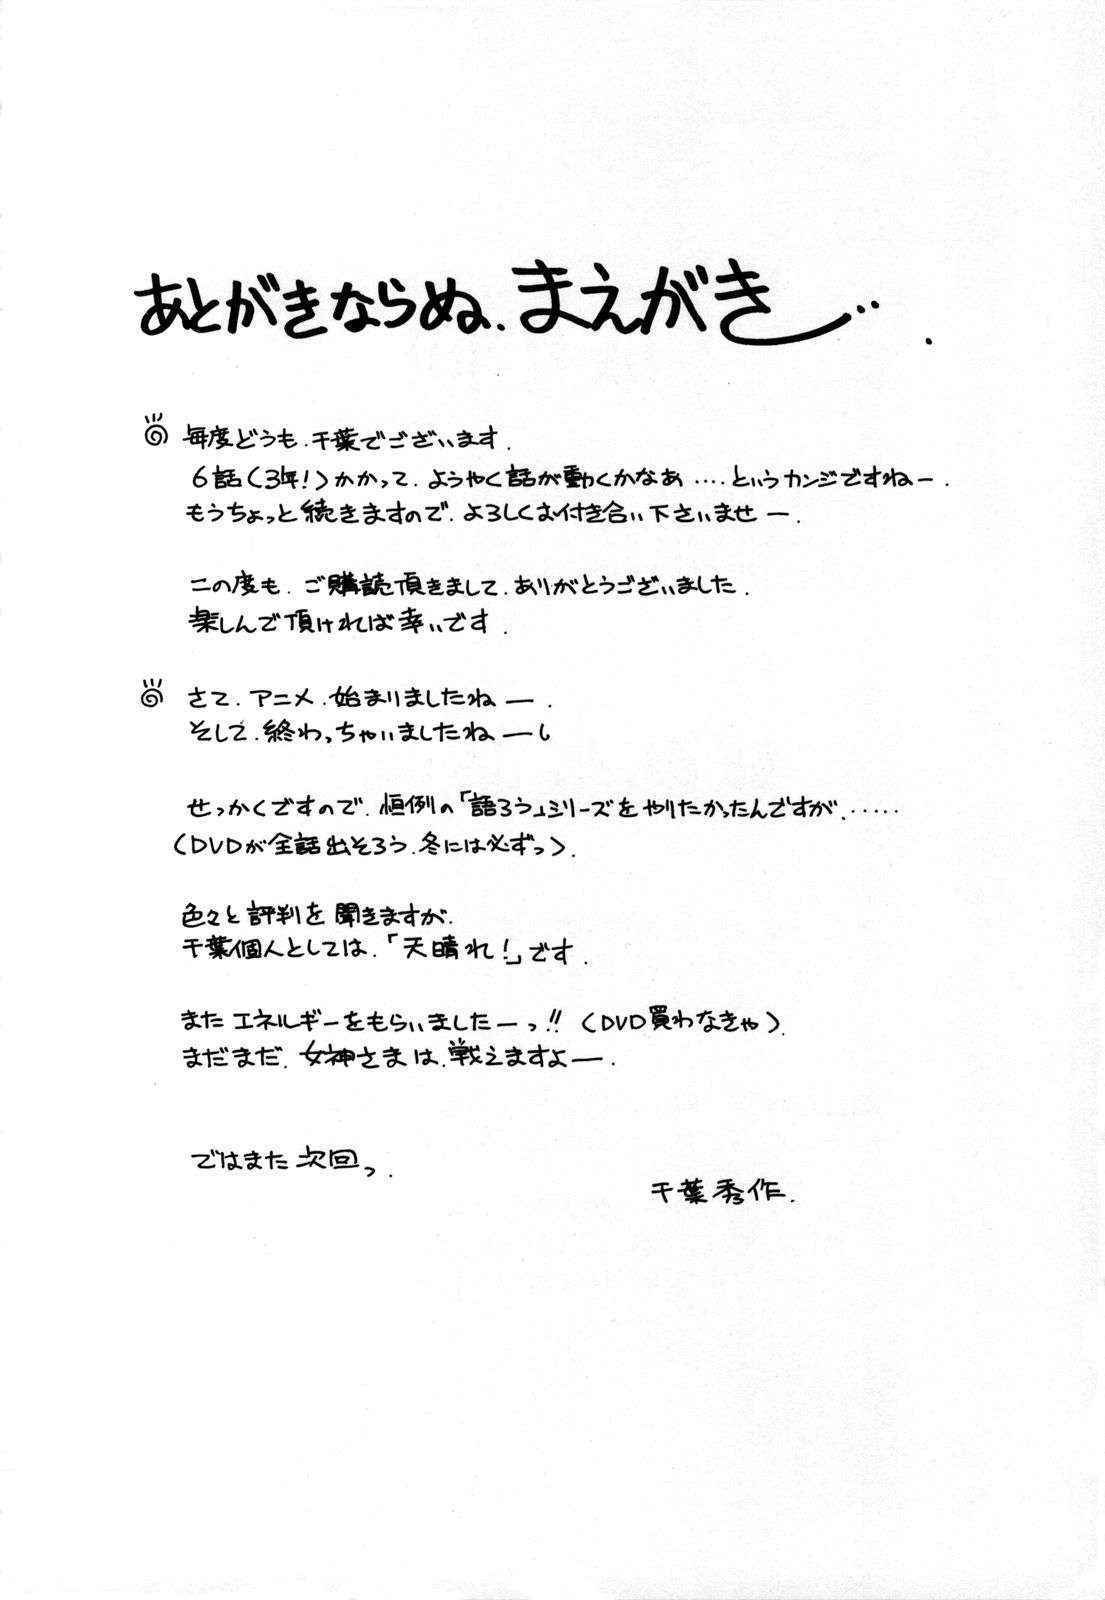 あとがきならぬ、まえがき…
毎度どうも、千葉でございます.
6話(3年!)かかって、ようやく話が動くかなあ‥‥というカンジですねー.
もうちょっと続きますので、よろしくお付き合い下さいませー.
この度も、ご購読頂きまして、ありがとうございました.
楽しんで頂ければ幸いです.
さて、アニメ、始まりましたねー.
そして、終わっちゃいましたねー
せっかくですので、恒例の「語ろう」シリーズをやりたかったんですが、‥‥‥
(DVDが全話出そろう、冬には必ずっ).
色々と評判を聞きますが、
千葉個人としては、「天晴れ!」です.
またエネルギーをもらいましたーっ!!(DVD買わなきゃ).
まだまだ、女神さまは、戦えますよー.
ではまた次回っ.
千葉秀作.